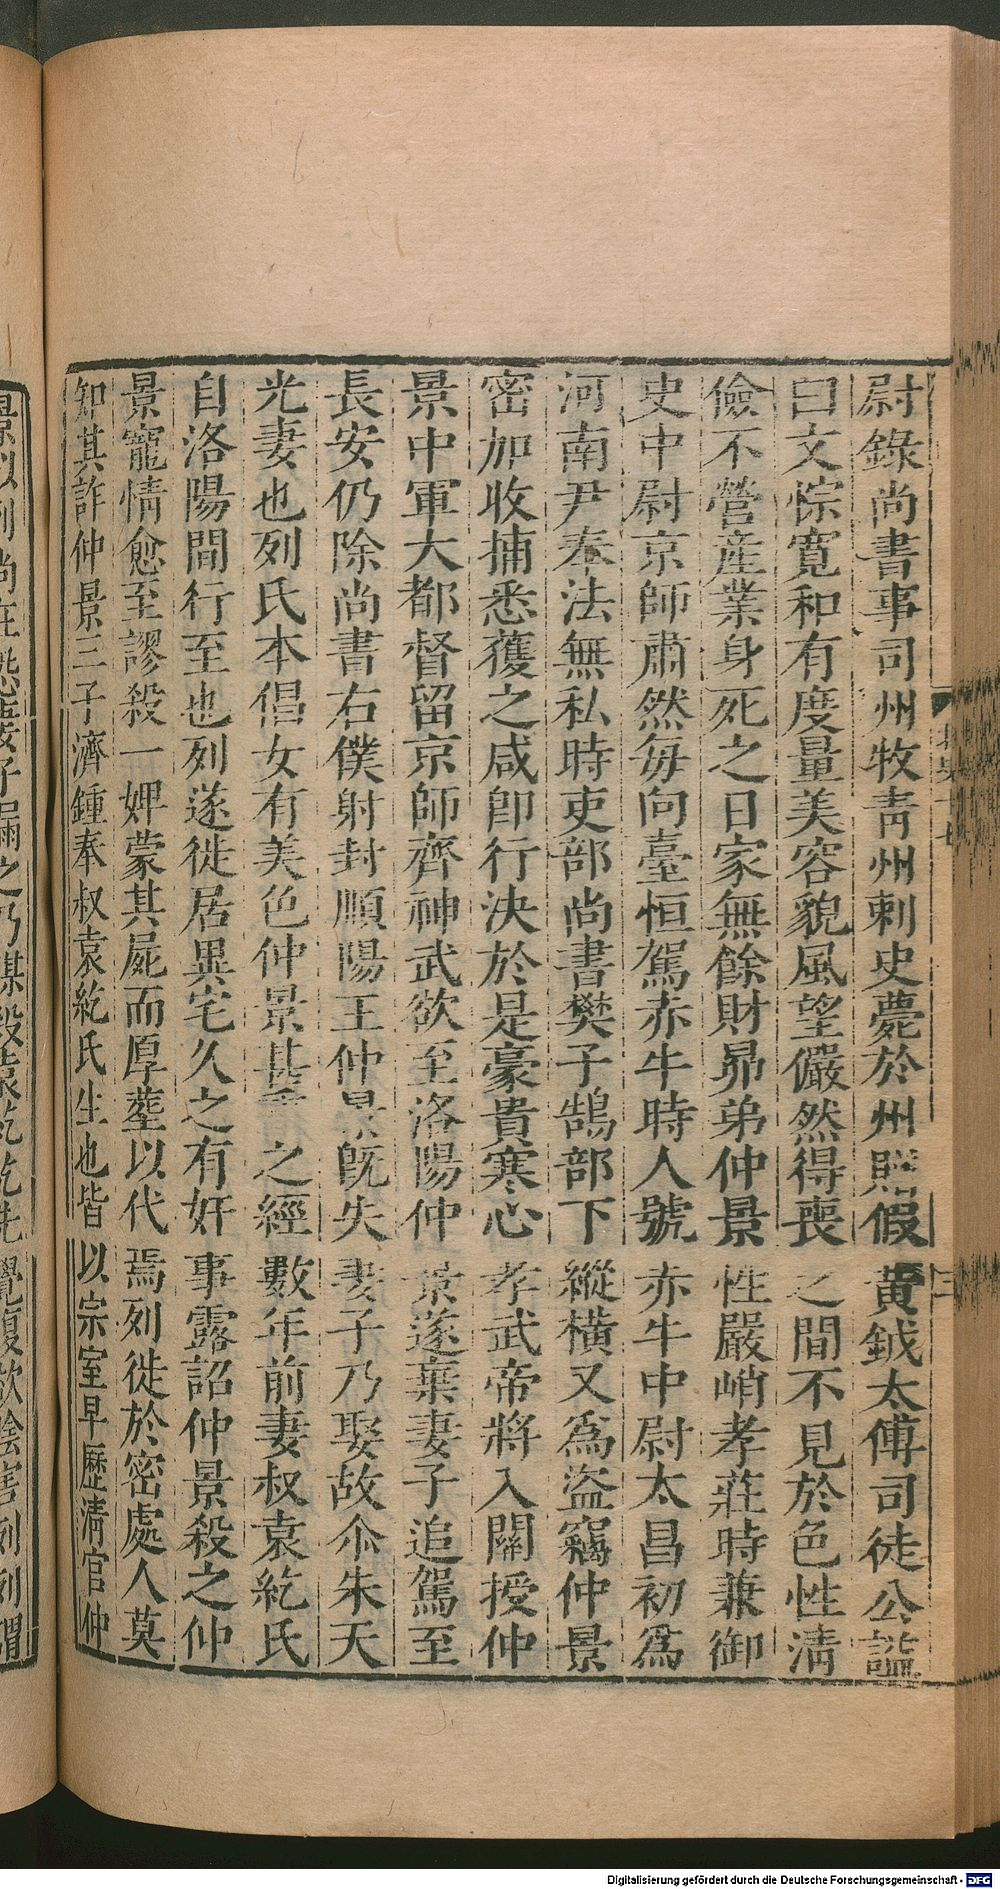 尉錄尚書事司州牧青州刺史薨於州贈假黄鉞太傅司徒公謚
曰文悰寛和有度量美容貌風望儼然得喪之間不見於色性清
儉不營産業身死之日家無餘財昴弟仲景性嚴峭孝莊時兼御
史中尉京師肅然每向臺恒駕赤牛時人號赤牛中尉太昌初爲
河南尹奉法無私時吏部尚書樊子鵠部下縱横又爲盜竊仲景
密加收捕悉獲之咸即行決於是豪貴寒心孝武帝將入關授仲
景中軍大都督留京師齊神武欲至洛陽仲景遂棄妻子追駕至
長安仍除尚書右僕射封順陽王仲景既失妻子乃娶故尒朱天
光妻也列氏本倡女有美色仲景甚重之經數年前妻叔袁紇氏
自洛陽間行至也列遂徙居異宅久之有奸事露詔仲景殺之仲
景寵情愈至謬殺一婢蒙其屍而厚葬以代焉列徙於密處人莫
知其詐仲景三子濟鍾奉叔袁紇氏生也皆以宗室早歷清官仲
Digitalisierung gefördert durch die Deutsche Forschungsgemeinschaft - DFG